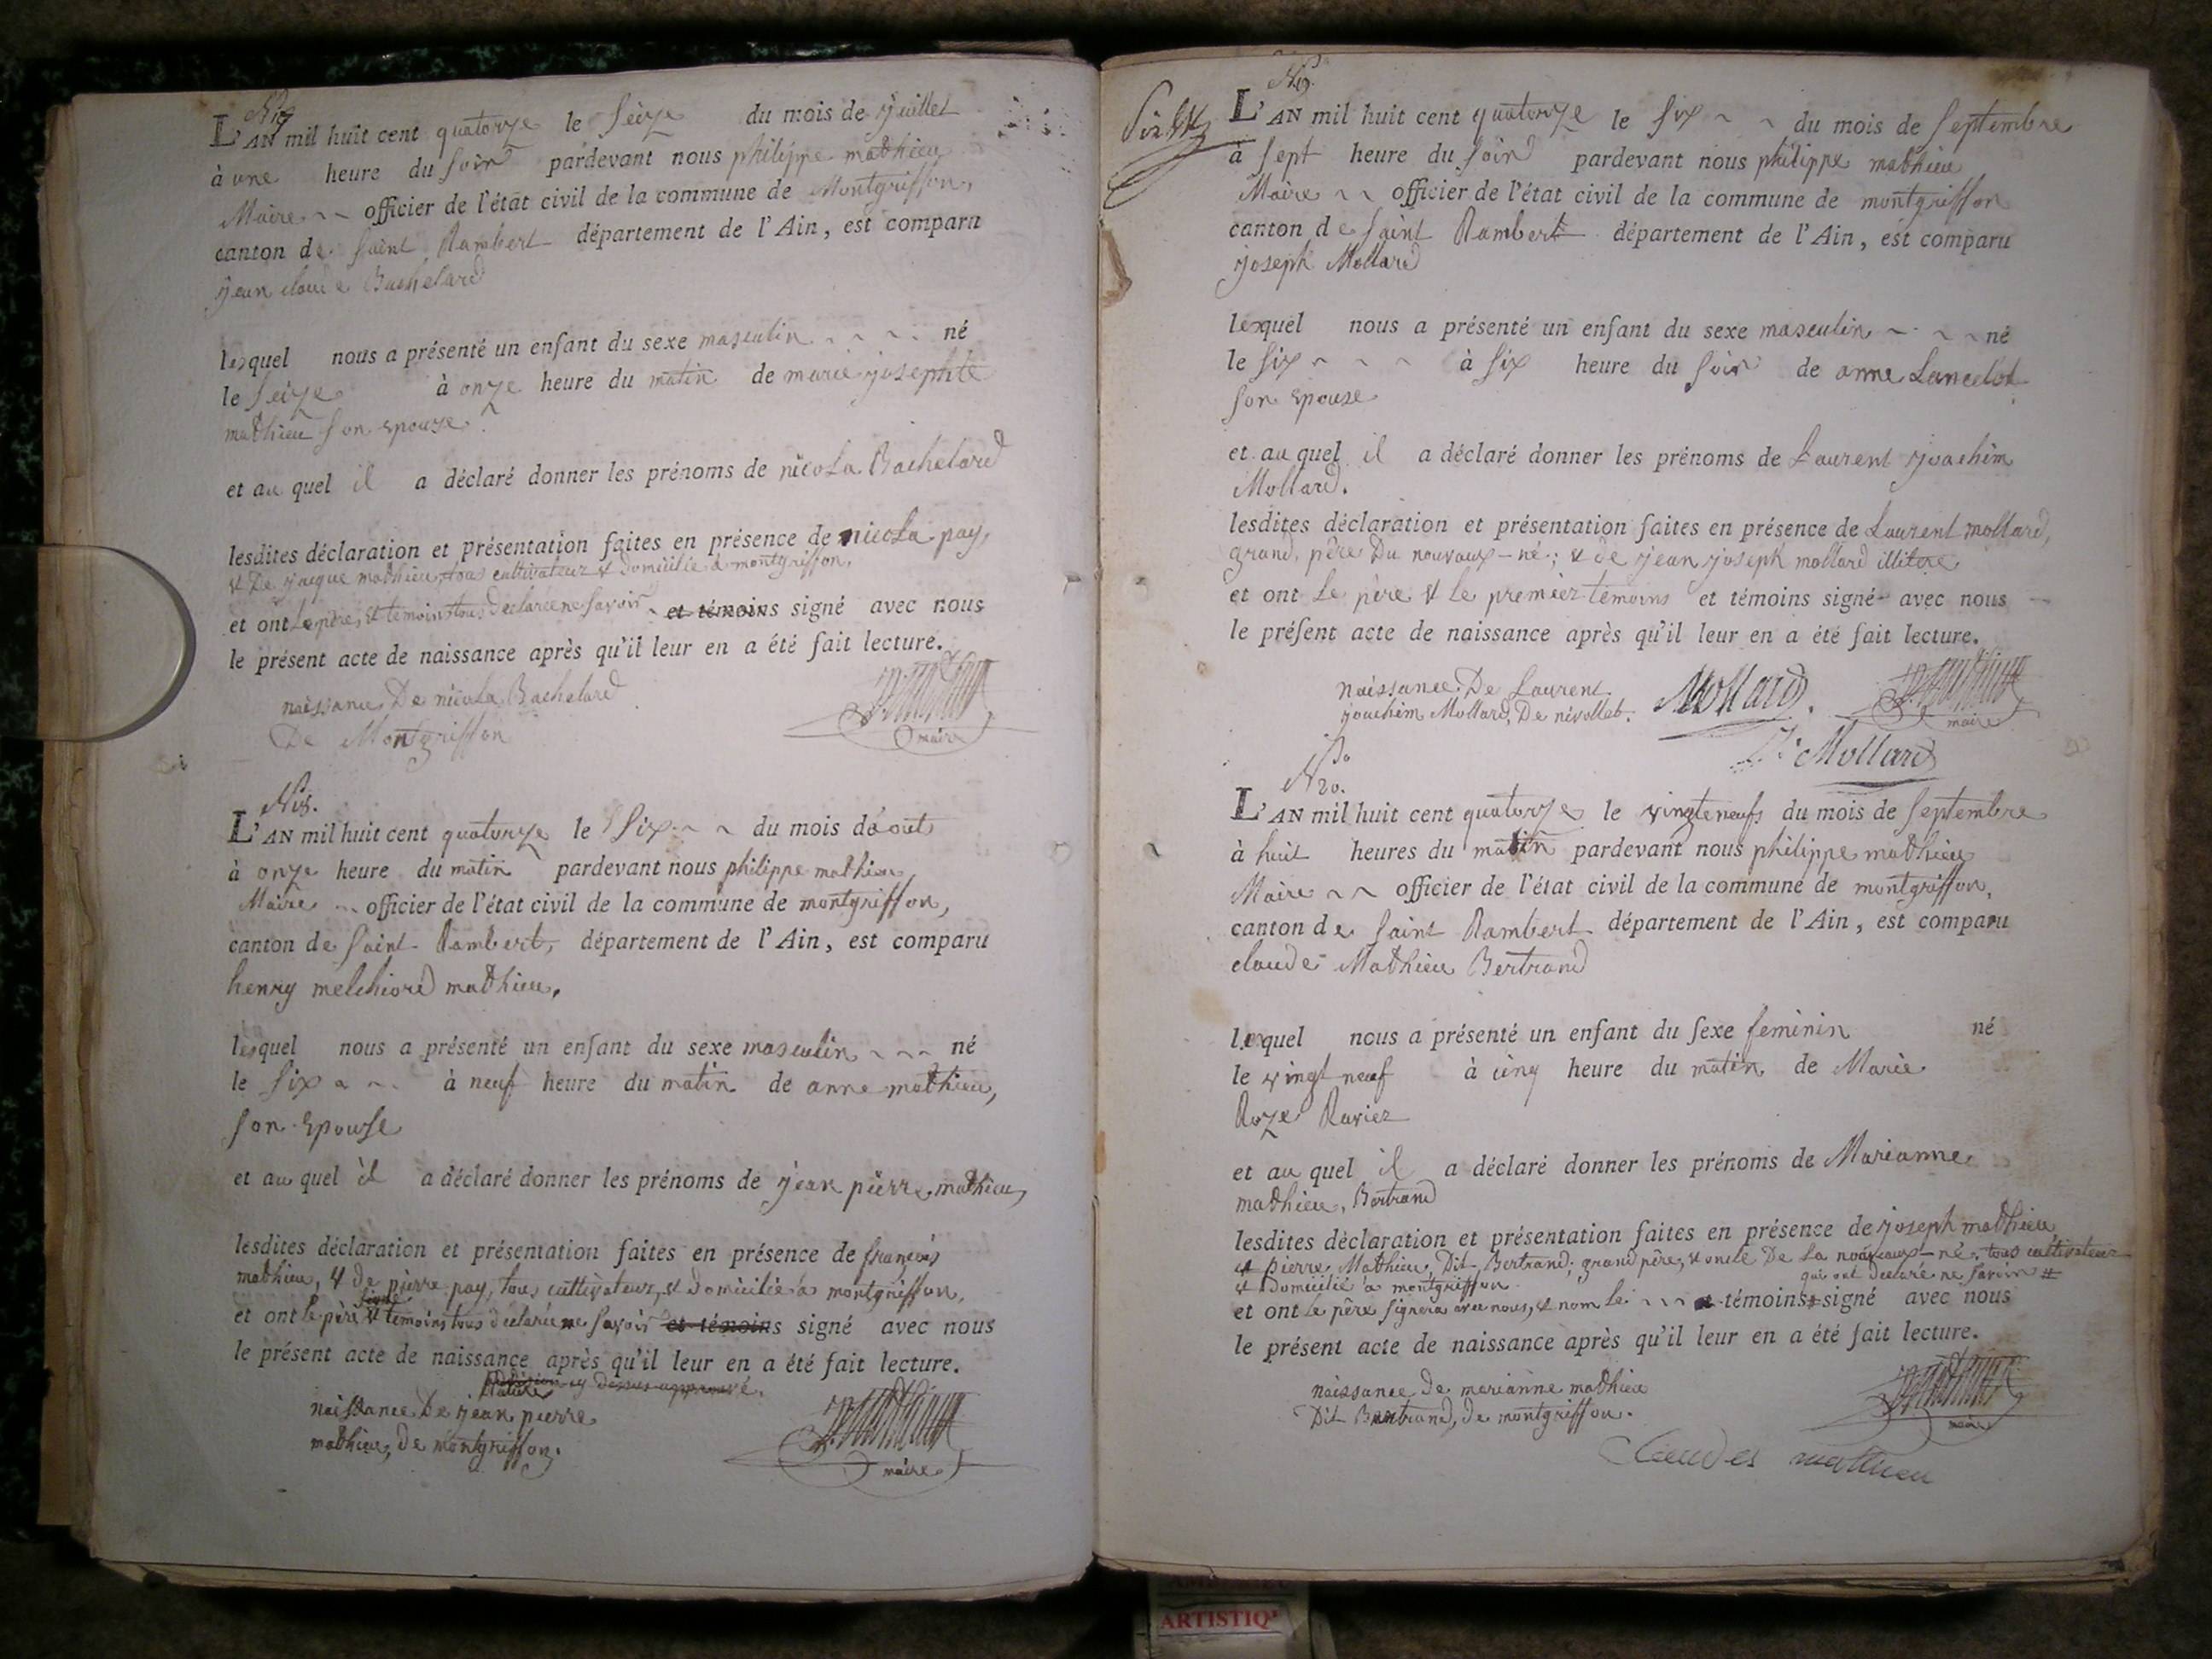 N° 17
L'AN mil huit cent quatorze le seize du mois de juillet
à une heure du soir pardevant nous philippe mathieu
Maire ~ ~ officier de l'état civil de la commune de Montgriffon,
canton de saint Rambert département de l'Ain, est comparu
jean claude Bachelard
lequel nous a présenté un enfant du sexe masculin ~ ~ ~ né
le seize à onze heure du matin de marie josephte
mathieu son epouze
et au quel il a déclaré donner les prénoms de nicola Bachelard
lesdites déclaration et présentation faites en présence de nicola pay,
& De jacque mathieu, tous cultivateur & domicilié à montgriffon,
et ont Le père, & temoins tous declaré ne savoir ~ et témoins signé avec nous
le présent acte de naissance après qu'il leur en a été fait lecture.
naissance De nicola Bachelard
De Montgriffon
P. Mathieu
maire
N° 18.
L'AN mil huit cent quatorze le six ~ ~ du mois d'aout
à onze heure du matin pardevant nous philippe mathieu,
Maire ~ officier de l'état civil de la commune de montgriffon,
canton de saint Rambert, département de l'Ain, est comparu
henry melchiord mathieu,
lequel nous a présenté un enfant du sexe masculin ~ ~ ~ né
le six ~ ~ à neuf heure du matin de anne mathieu,
son Epouse
et au quel il a déclaré donner les prénoms de jean pierre mathieu,
lesdites déclaration et présentation faites en présence de françois
mathieu, & de pierre pay, tous cultivateur, & domicilié à montgriffon,
et ont le père & temoins tous déclaré ne savoir et témoins signé avec nous
le présent acte de naissance après qu'il leur en a été fait lecture.
cy dessus approuvé.
naissance De jean pierre
mathieu, de montgriffon.
P. Mathieu
maire
N° 19.
L'AN mil huit cent quatorze le six ~ ~ du mois de septembre
à sept heure du soir pardevant nous philippe mathieu
Maire ~ ~ officier de l'état civil de la commune de montgriffon
canton de saint Rambert département de l'Ain, est comparu
joseph Mollard
lequel nous a présenté un enfant du sexe masculin ~ ~ ~ né
le six ~ ~ ~ à six heure du soir de anne Lancelot
son epouse
et au quel il a déclaré donner les prénoms de Laurent joachim
Mollard.
lesdites déclaration et présentation faites en présence de Laurent mollard,
grand, père Du nouvaux-né; & de jean joseph mollard illitere
et ont Le père & Le premier temoins et témoins signé avec nous
le présent acte de naissance après qu'il leur en a été fait lecture.
naissance De Laurent
joachim Mollard, De nivollet.
Mollard.
P. Mathieu
maire
Mollard
N° 20.
L'AN mil huit cent quatorze le vingteneufs du mois de septembre
à huit heures du matin pardevant nous philippe mathieu
Maire ~ ~ officier de l'état civil de la commune de montgriffon,
canton de saint Rambert département de l'Ain, est comparu
claude Mathieu Bertrand
lequel nous a présenté un enfant du sexe feminin né
le vingt neuf à cinq heure du matin de Marie
Roze Ravier
et au quel il a déclaré donner les prénoms de Marianne
mathieu, Bertrand
lesdites déclaration et présentation faites en présence de joseph mathieu,
& pierre Mathieu, Dit Bertrand; grand père, & oncle De La nouveaux-né, tous cultivateur
& Domicilié à montgriffon qui ont declaré ne savoir #
et ont Le père signera avec nous, & nom Le ~ ~ ~ et témoins # signé avec nous
le présent acte de naissance après qu'il leur en a été fait lecture.
naissance de marianne mathieu
Dit Bertrand, de montgriffon.
P. Mathieu
maire
Claudes mathieu
ARTISTIQ